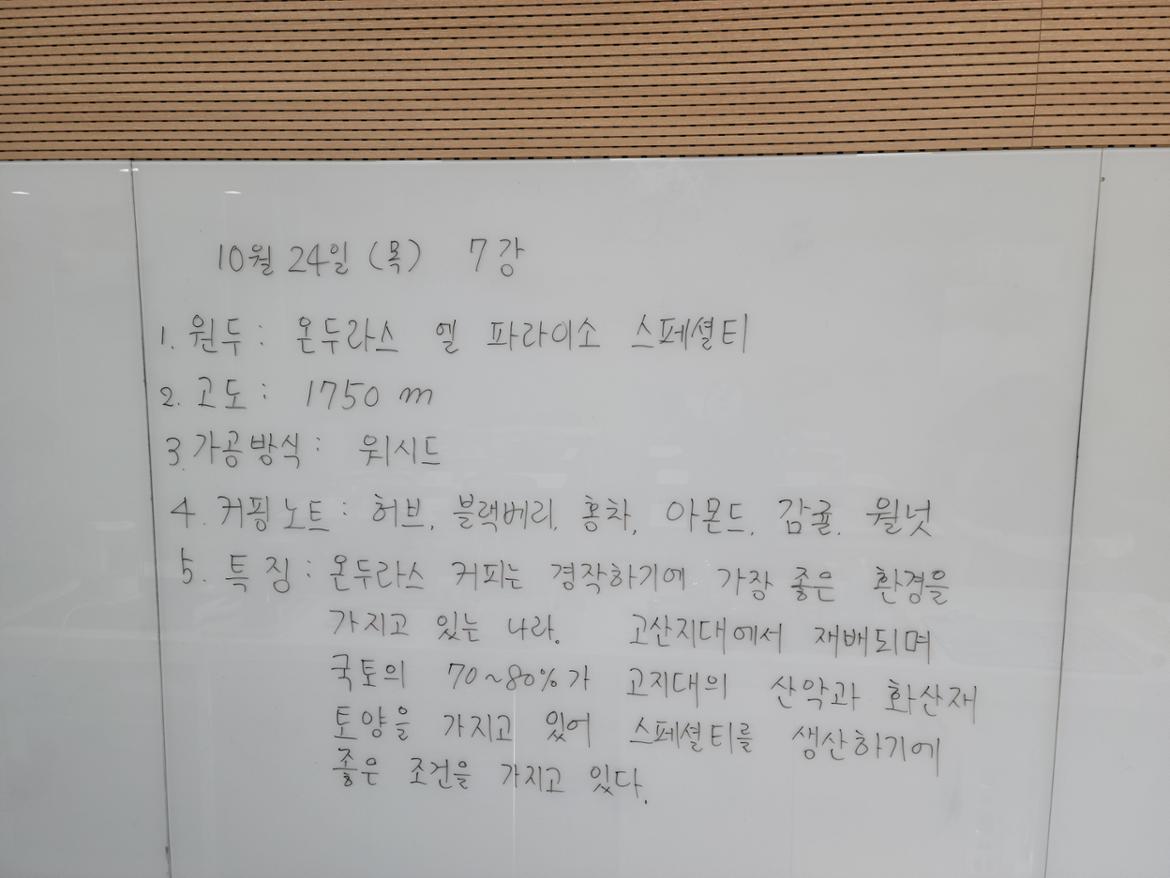 10월 24일 (목) 7강
1. 원두 : 온두라스 엘 파라이소 스페셜티
2. 고도 : 1750 m
3. 가공방식 : 워시드
4. 커핑노트 : 허브, 블랙베리, 홍차, 아몬드, 감귤, 월넛
5. 특징 : 온두라스 커피는 경작하기에 가장 좋은 환경을
가지고 있는 나라. 고산지대에서 재배되며
국토의 70~80%가 고지대의 산악과 화산재
토양을 가지고 있어 스페셜티를 생산하기에
좋은 조건을 가지고 있다.